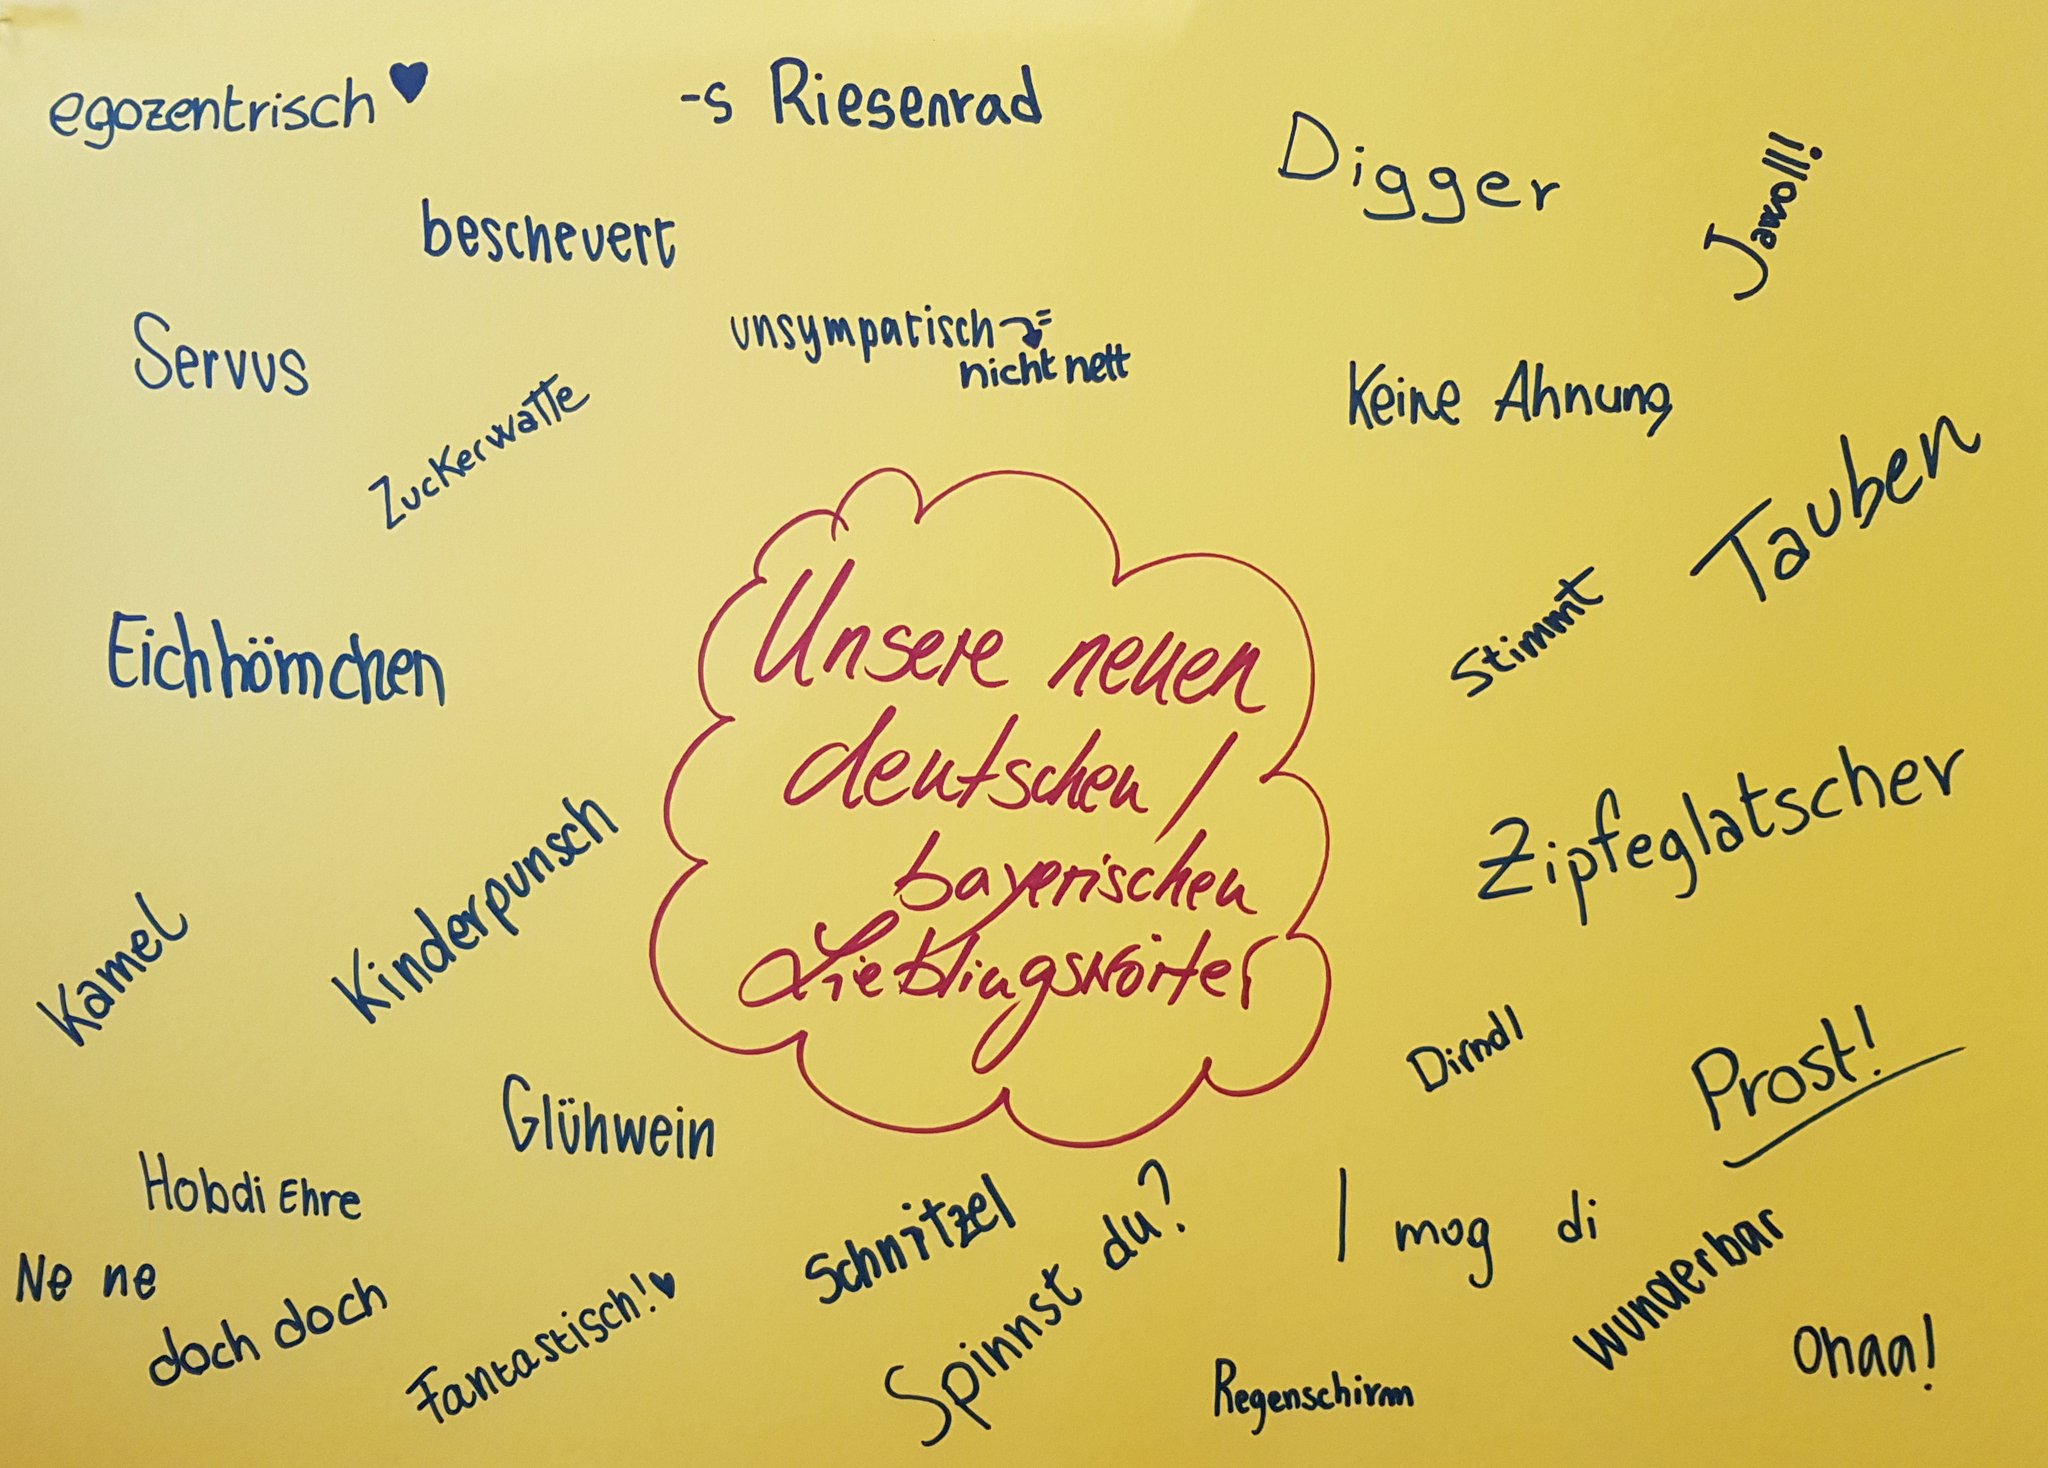 egozentrisch ♥
-s Riesenrad
Digger
Jawoll!
bescheuert
Servus
unsympatisch =
nicht nett
Zuckerwatte
Keine Ahnung
Tauben
Stimmt
Eichhörnchen
Unsere neuen
deutschen /
bayerischen
Lieblingswörter
Zipfeglatscher
Kinderpunsch
Kamel
Dirndl
Prost!
Glühwein
Hobdi Ehre
Schnitzel
Spinnst du?
I mog di
Wunderbar
Ne ne
doch doch
Fantastisch! ♥
Regenschirm
Ohaa!